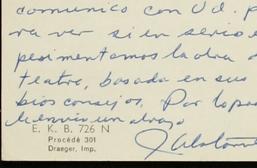 comunico con Ud. p
ra ver si en serio e
perimentamos la obra d
teatro, basada en sus
bios consejos. Por lo pro
le envío un abrazo
E. K. B. 726 N
Procédé 301
Draeger, Imp.